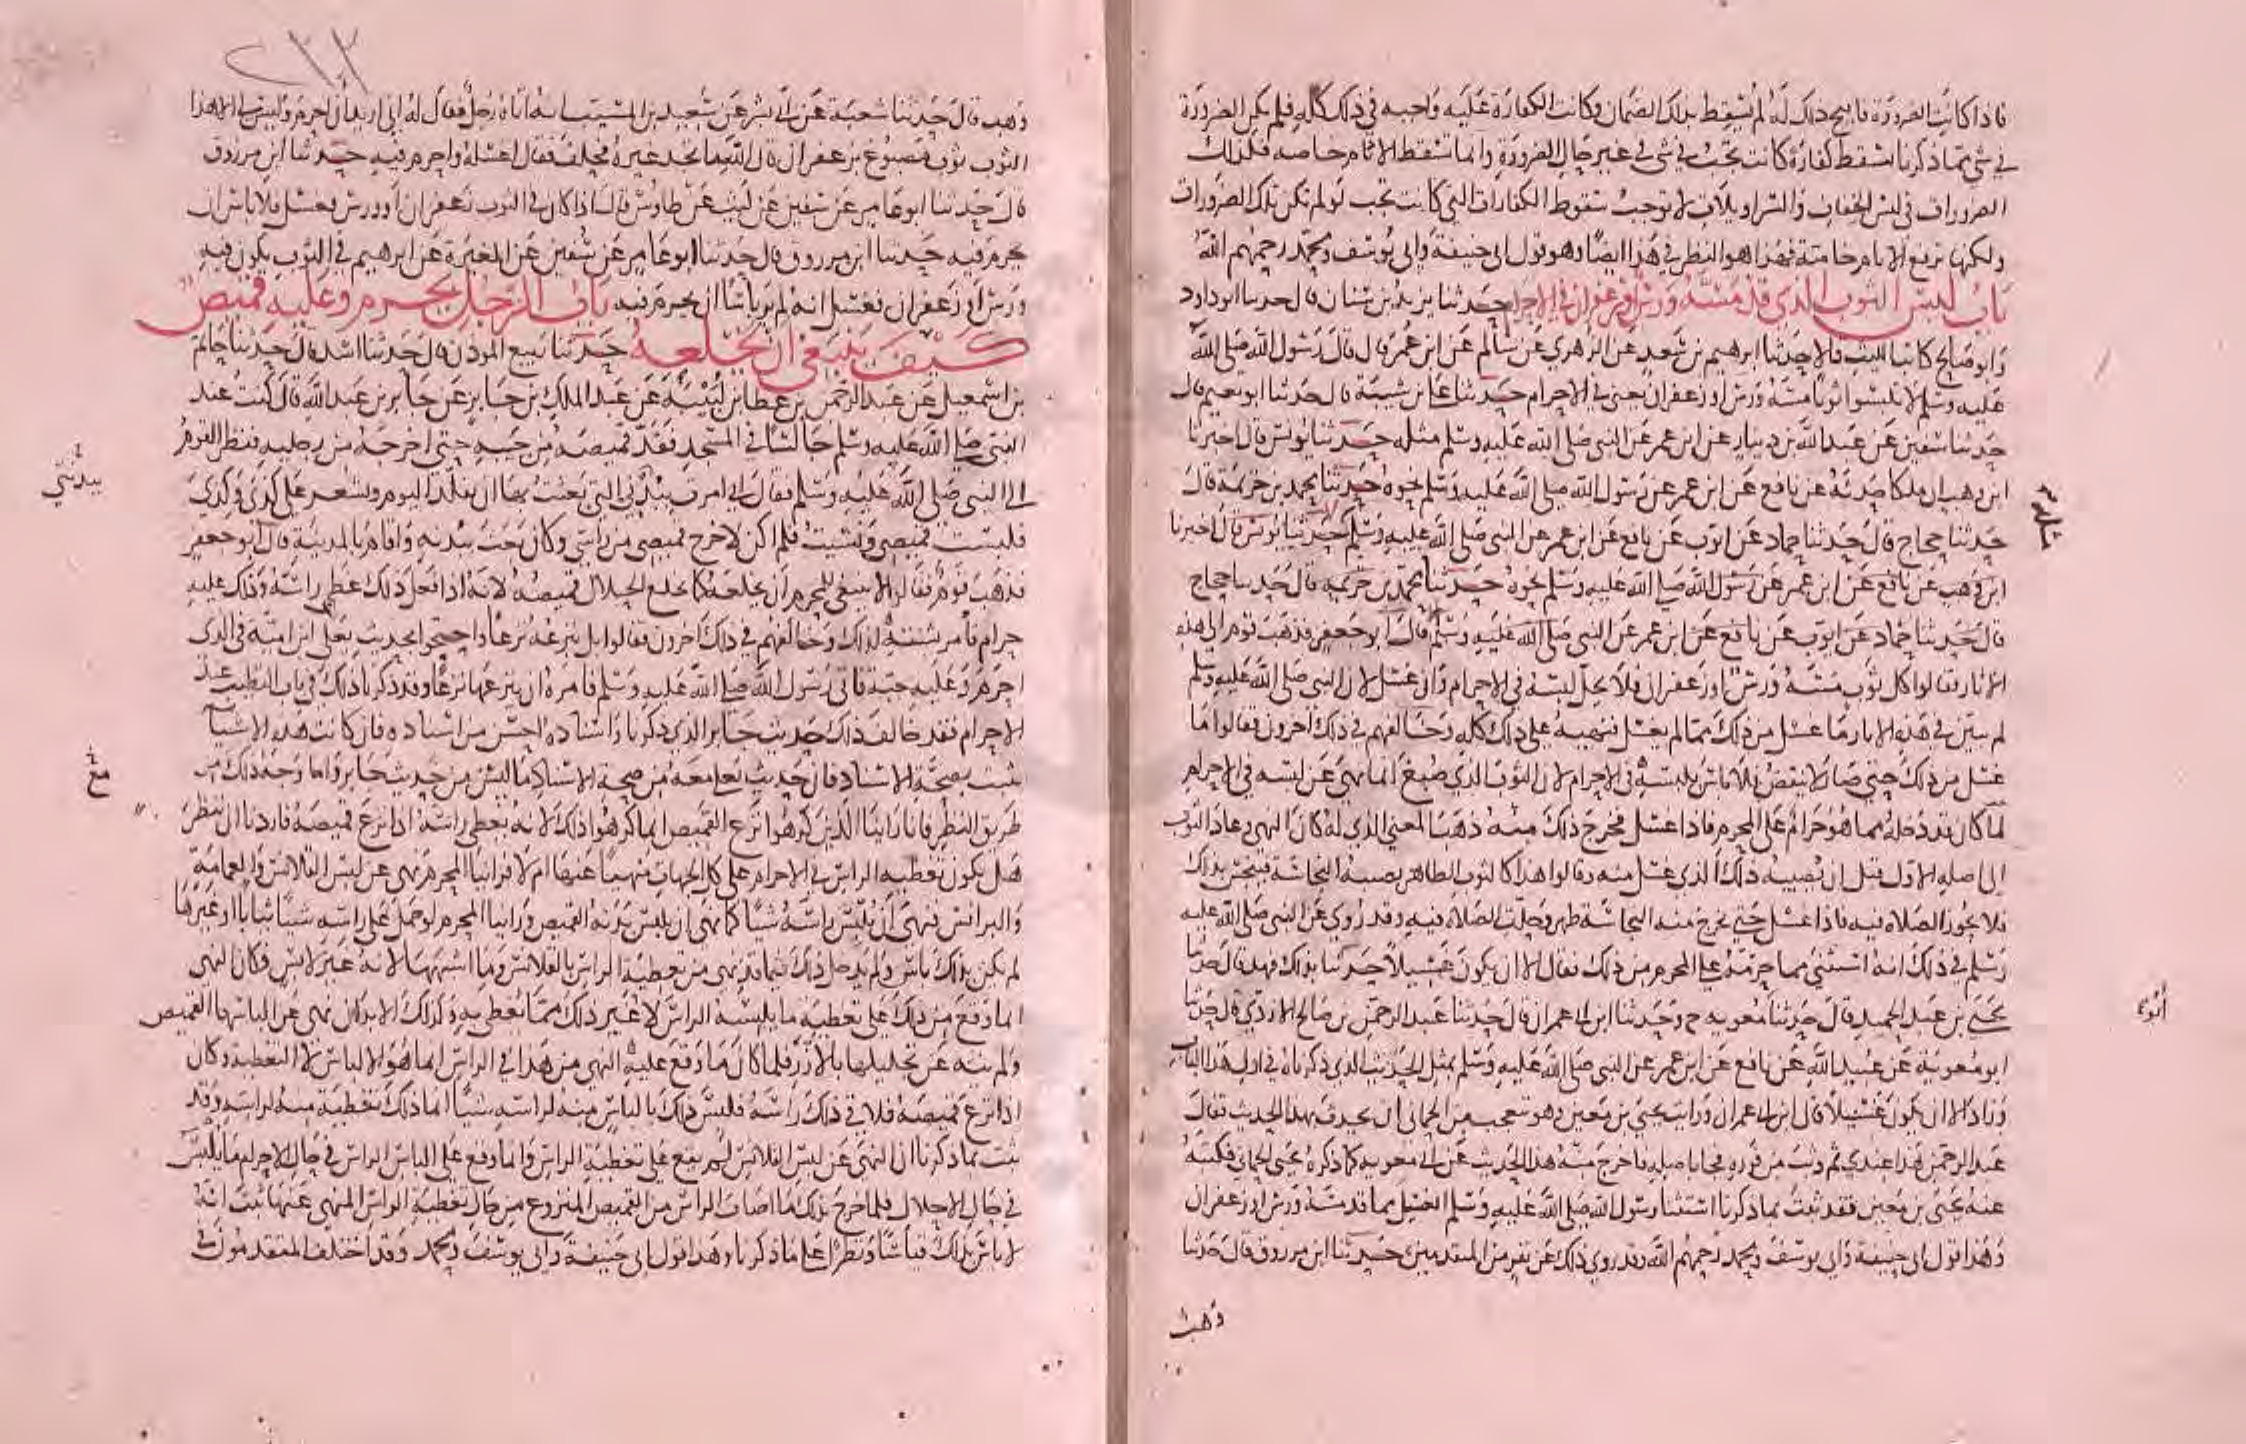 فاذا كانت الضرورة فابيح ذلك له لم يسقط بذلك الضمان وكانت الكفارة عليه واجبه في ذلك كله فلم يكن الضرورة
في شي مما ذكرنا تسقط كفارة كانت تجب في شي في غير حال الضرورة وانما تسقط الاثام خاصه فكذلك
الضرورات في لبس الخفاف والسراويلات لا توجب سقوط الكفارات التي كانت تجب لو لم تكن تلك الضرورات
ولكنها ترفع الاثام خاصة فهذا هو النظر في هذا ايضا وهو قول ابي حنيفة وابي يوسف ومحمد رحمهم الله
باب لبس الثوب الذي قد مسه ورس او زعفران في الاحرام حدثنا يزيد بن سنان قال حدثنا ابو داود
وابو صالح كاتب الليث قالا حدثنا ابرهيم بن سعد عن الزهري عن سالم عن ابن عمر قال قال رسول الله صلى الله
عليه وسلم لا تلبسوا ثوبا مسه ورس او زعفران يعني في الاحرام حدثنا علي بن شيبة قال حدثنا ابو نعيم قال
حدثنا سفين عن عبد الله بن دينار عن ابن عمر عن النبي صلى الله عليه وسلم مثله حدثنا يونس قال اخبرنا
ابن وهب ان ملكا حدثه عن نافع عن ابن عمر عن رسول الله صلى الله عليه وسلم نحوه حدثنا محمد بن خزيمة قال
حدثنا حجاج قال حدثنا حماد عن ايوب عن نافع عن ابن عمر عن النبي صلى الله عليه وسلم حدثنا يونس قال اخبرنا
ابن وهب عن نافع عن ابن عمر عن رسول الله صلى الله عليه وسلم نحوه حدثنا محمد بن خزيمة قال حدثنا حجاج
قال حدثنا حماد عن ايوب عن نافع عن ابن عمر عن النبي صلى الله عليه وسلم قال ابو جعفر فذهب قوم الى هذه
الاثار فقالوا كل ثوب مسه ورس او زعفران فلا يحل لبسه في الاحرام وان غسل لان النبي صلى الله عليه وسلم
لم يبين في هذه الاثار ما غسل من ذلك مما لم يغسل فنهيه على ذلك كله وخالفهم في ذلك اخرون فقالوا ما
غسل من ذلك حتى صار لا ينفض فلا باس بلبسه في الاحرام لان الثوب الذي صبغ انما نهي عن لبسه في الاحرام
لما كان قد دخله مما هو حرام على المحرم فاذا غسل فخرج ذلك منه ذهب المعنى الذي له كان النهي وعاد الثوب
الى اصله الاول قبل ان يصيبه ذلك الذي غسل منه وقالوا هذا كالثوب الطاهر يصيبه النجاسة فينجس بذلك
فلا يجوز الصلاه فيه فاذا غسل حتى يخرج منه النجاسة طهر وحلت الصلاة فيه وقد روي عن النبي صلى الله عليه
وسلم في ذلك انه استثنى مما حرمه على المحرم من ذلك فقال الا ان يكون غسيلا حدثنا بذلك فهد قال حدثنا
يحيى بن عبد الحميد قال حدثنا معويه ح وحدثنا ابن ابي عمران قال حدثنا عبد الرحمن بن صالح الازدي قال حدثنا
ابو معوية عن عبيد الله عن نافع عن ابن عمر عن النبي صلى الله عليه وسلم بمثل الحديث الذي ذكرناه في اول هذا الباب
وزاد الا ان يكون غسيلا قال ابن ابي عمران ورايت يحيى بن معين وهو متعجب من الحماني ان يحدث بهذا الحديث فقال
عبد الرحمن هذا عندي ثم وثب من فوره فجا باصله فاخرج منه هذا الحديث عن ابي معويه كما ذكره يحيى الحماني فكتبه
عنه يحيى بن معين فقد ثبت بما ذكرنا استثنا رسول الله صلى الله عليه وسلم الغسيل مما قد مسه ورس او زعفران
وهذا قول ابي حنيفة وابي يوسف ومحمد رحمهم الله وقد روي ذلك عن نفر من المتقدمين حدثنا ابن مرزوق قال حدثنا
وهب
ابو
وهب قال حدثنا شعبة عن ابي بشر عن سعيد بن المسيب انه اتاه رجل فقال له اني اريد ان احرم وليس لي الا هذا
الثوب ثوب مصبوغ بزعفران قال الله ما تجد غيره فحلف فقال اغسله واحرم فيه حدثنا ابن مرزوق
قال حدثنا ابو عامر عن سفين عن ليث عن طاوس قال اذا كان في الثوب زعفران او ورس فغسل فلا باس ان
يحرم فيه حدثنا ابن مرزوق قال حدثنا ابو عامر عن سفين عن المغيرة عن ابرهيم في الثوب يكون فيه
ورس او زعفران فغسل انه لم ير باسا ان يحرم فيه باب الرجل يحرم وعليه قميص
كيف ينبغي ان يخلعه حدثنا ربيع الموذن قال حدثنا اسد قال حدثنا حاتم
بن اسمعيل عن عبد الرحمن بن عطا بن لبيبة عن عبد الملك بن جابر عن جابر بن عبد الله قال كنت عند
النبي صلى الله عليه وسلم جالسا في المسجد فقد قميصه من جيبه حتى اخرجه من رجليه فنظر القوم
الى النبي صلى الله عليه وسلم فقال اني امرت ببدني التي بعثت بها ان تقلد اليوم وتشعر على كذى وكذى
فلبست قميصي ونسيت فلم اكن لاخرج قميصي من راسي وكان بعث ببدنه واقام بالمدينة قال ابو جعفر
فذهب قوم فقالوا لا ينبغي للمحرم ان يخلعه كما يخلع الحلال قميصه لانه اذا فعل ذلك غطى راسه وذلك عليه
حرام فامر بشقه لذلك وخالفهم في ذلك اخرون فقالوا بل ينزعه نزعا واحتجوا بحديث يعلى ابن امية في الذي
احرم وعليه جبة فاتى رسول الله صلى الله عليه وسلم فامره ان ينزعها نزعا وقد ذكرنا ذلك في باب التطيب عند
الاحرام فقد خالف ذلك حديث جابر الذي ذكرنا واسناده احسن من اسناده فان كانت هذه الاشيا
تثبت بصحة الاسناد فان حديث يعلى معه من صحة الاسناد ما ليس من حديث جابر واما وجه ذلك من
طريق النظر فانا راينا الذين كرهوا نزع القميص انما كرهوا ذلك لانه يغطي راسه اذا نزع قميصه فاردنا ان ننظر
هل يكون تغطيه الراس في الاحرام على كل الجهات منهيا عنها ام لا فراينا المحرم نهي عن لبس القلانس والعمامة
والبرانس فنهي ان يلبس راسه شيا كما نهي ان يلبس بدنه القميص وراينا المحرم لو حمل على راسه شيا ثيابا او غيرها
لم يكن بذلك باس ولم يدخل ذلك فيما قد نهي من تغطية الراس بالقلانس وما اشبهها لانه غير لابس فكان النهي
انما وقع من ذلك على تغطية ما يلبسه الراس لا غير ذلك مما يغطى به وكذلك الابدان نهي عن الباسها القميص
ولم ينه عن تجليلها بالازر فلما كان ما وقع عليه النهي من هذا في الراس انما هو الالباس لا التغطية وكان
اذا نزع قميصه فلاقى ذلك راسه فليس ذلك بالباس منه لراسه شيا انما ذلك تغطية منه لراسه وقد
ثبت بما ذكرنا ان النهي عن لبس القلانس لم يقع على تغطية الراس وانما وقع على الباس الراس في حال الاحرام ما يلبس
في حال الاحلال فلما خرج بذلك ما اصاب الراس من القميص المنزوع من حال تغطية الراس المنهي عنها ثبت انه
لا باس بذلك قياسا ونظرا على ما ذكرنا وهذا قول ابي حنيفة وابي يوسف ومحمد وقد اختلف المتقدمون في
ببدني
مع